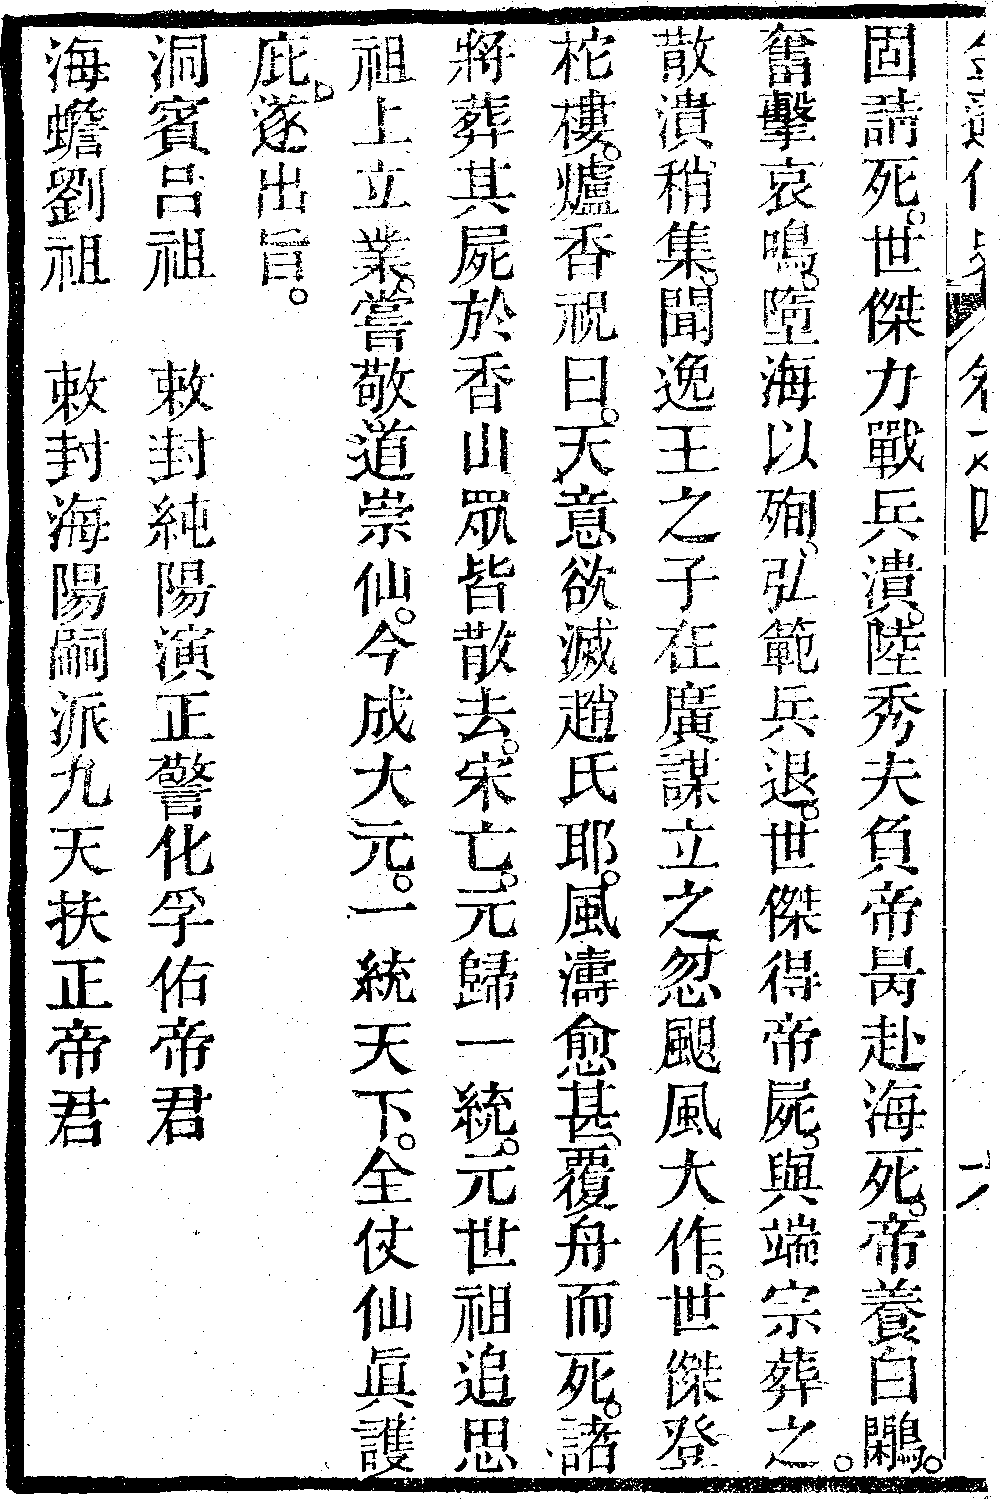 固請死。世傑力戰兵潰。陸秀夫負帝昺赴海死。帝養白鷴。
奮擊哀鳴。墮海以殉。弘範兵退。世傑得帝屍。與端宗葬之。
散潰稍集。聞逸王之子在廣謀立之忽颶風大作。世傑登
柁樓。爐香祝曰。天意欲滅趙氏耶。風濤愈甚。覆舟而死。諸
將葬其屍於香山眾皆散去。宋亡。元歸一統。元世祖追思
祖上立業。嘗敬道崇仙。今成大元。一統天下。全仗仙眞護
庇。遂出旨。
洞賓呂祖　敕封純陽演正警化孚佑帝君
海蟾劉祖　敕封海陽嗣派九天扶正帝君